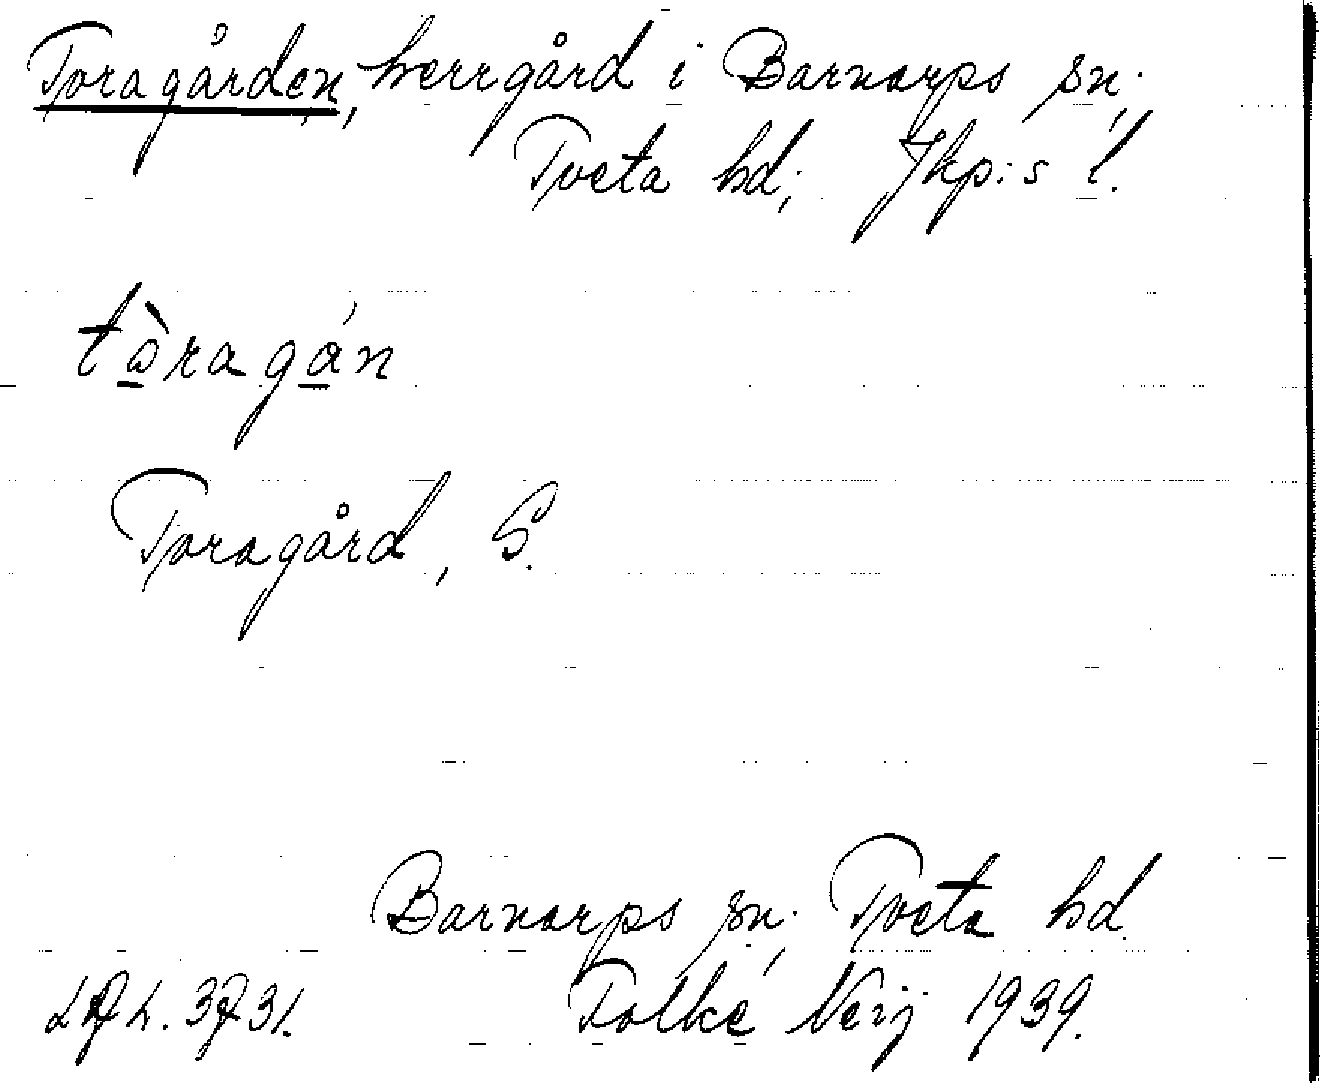 Toragården, herrgård i Barnarps sn;
Tveta hd; Jkp:s l.
tòragán
Toragård, S.
Barnarps sn; Tveta hd.
Folke Neij 1939.